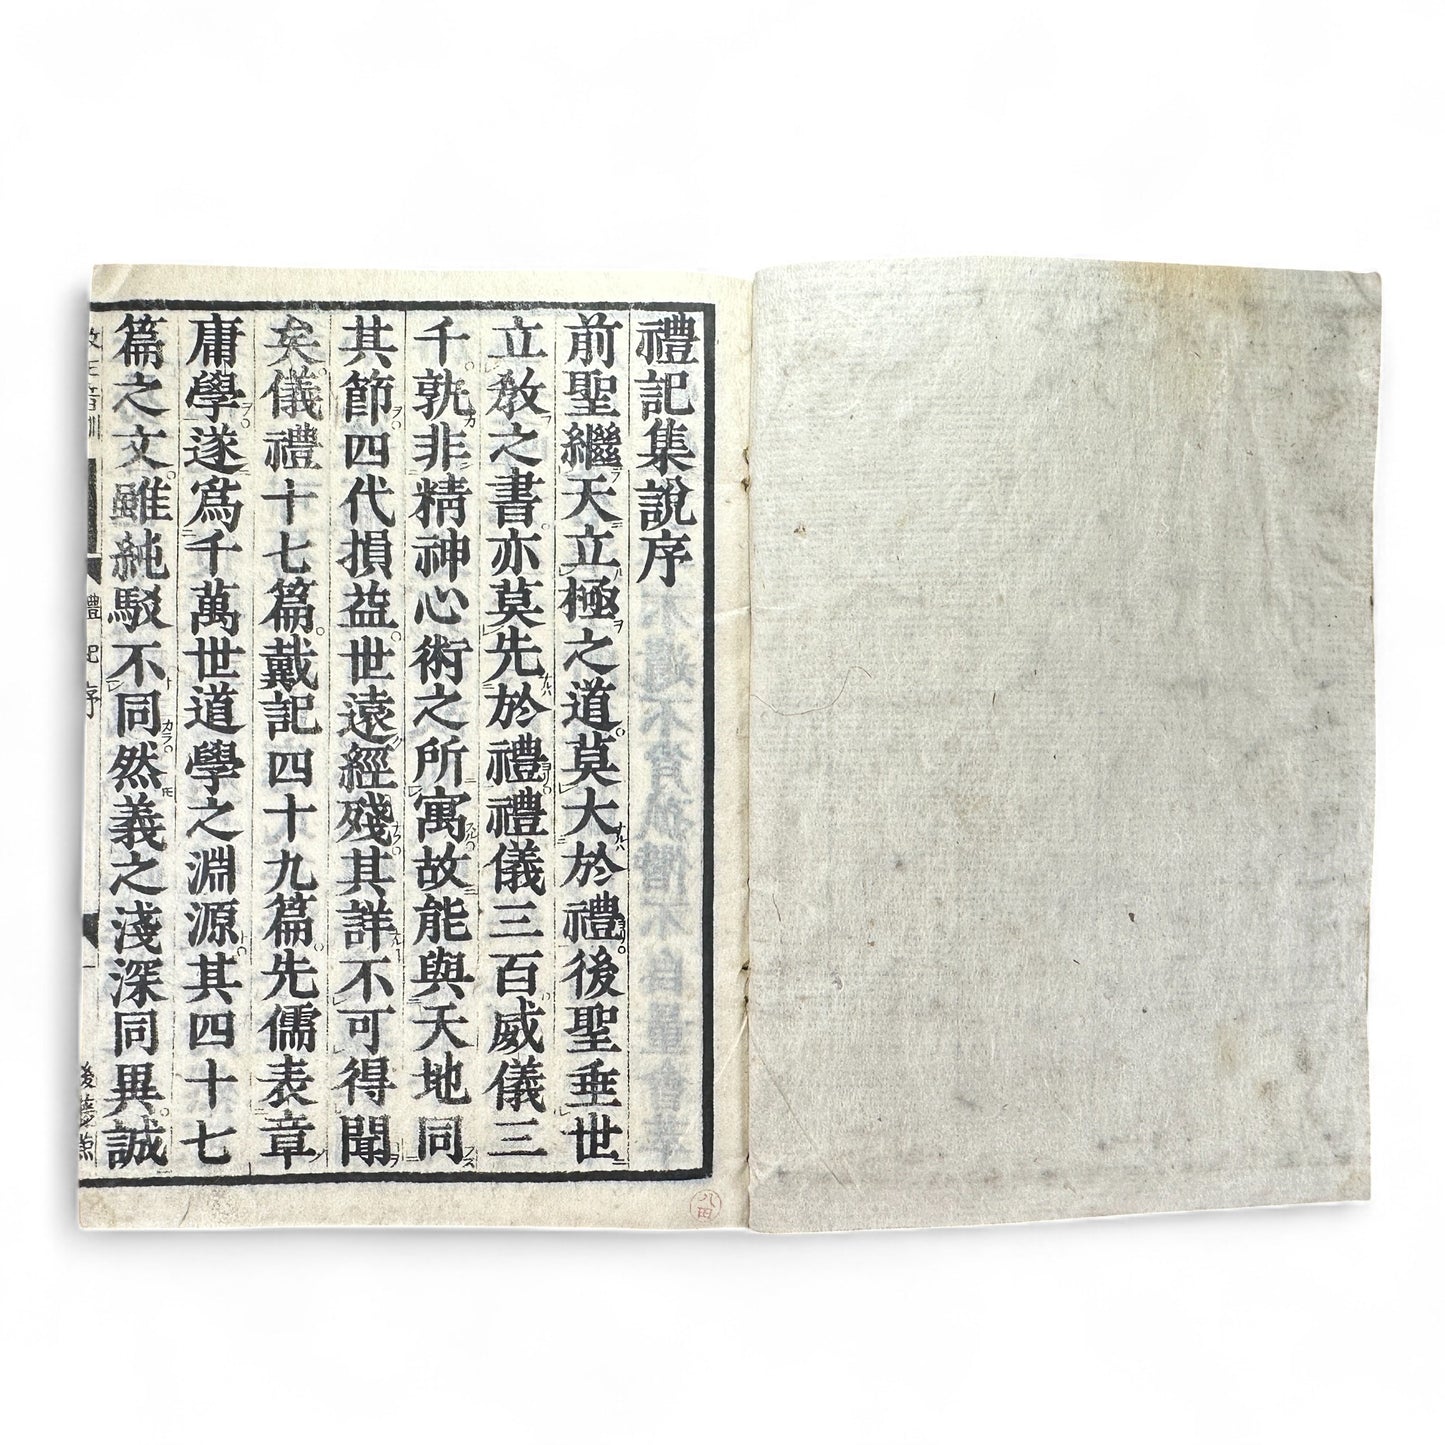 禮記集說序
前聖繼天立極之道莫大於禮後聖垂世
立教之書亦莫先於禮禮儀三百威儀三
千孰非精神心術之所寓故能與天地同
其節四代損益世遠經殘其詳不可得聞
矣儀禮十七篇戴記四十九篇先儒表章
庸學遂爲千萬世道學之淵源其四十七
篇之文雖純駁不同然義之淺深同異誠
禮記序
後藤點
八田